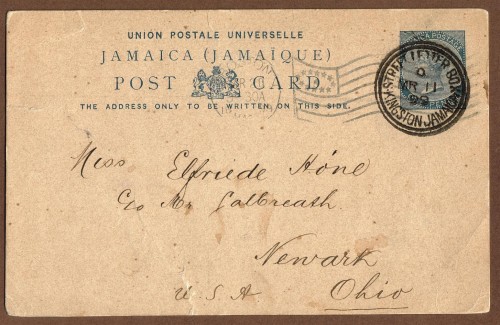 UNION POSTALE UNIVERSELLE
JAMAICA (JAMAÏQUE)
POST CARD
THE ADDRESS ONLY TO BE WRITTEN ON THIS SIDE.
STREET LETTER BOX
MR 11
99
KINGSTON JAMAICA
Miss Elfriede Höne
C/o Mr Galbreath
Newark
U.S.A Ohio